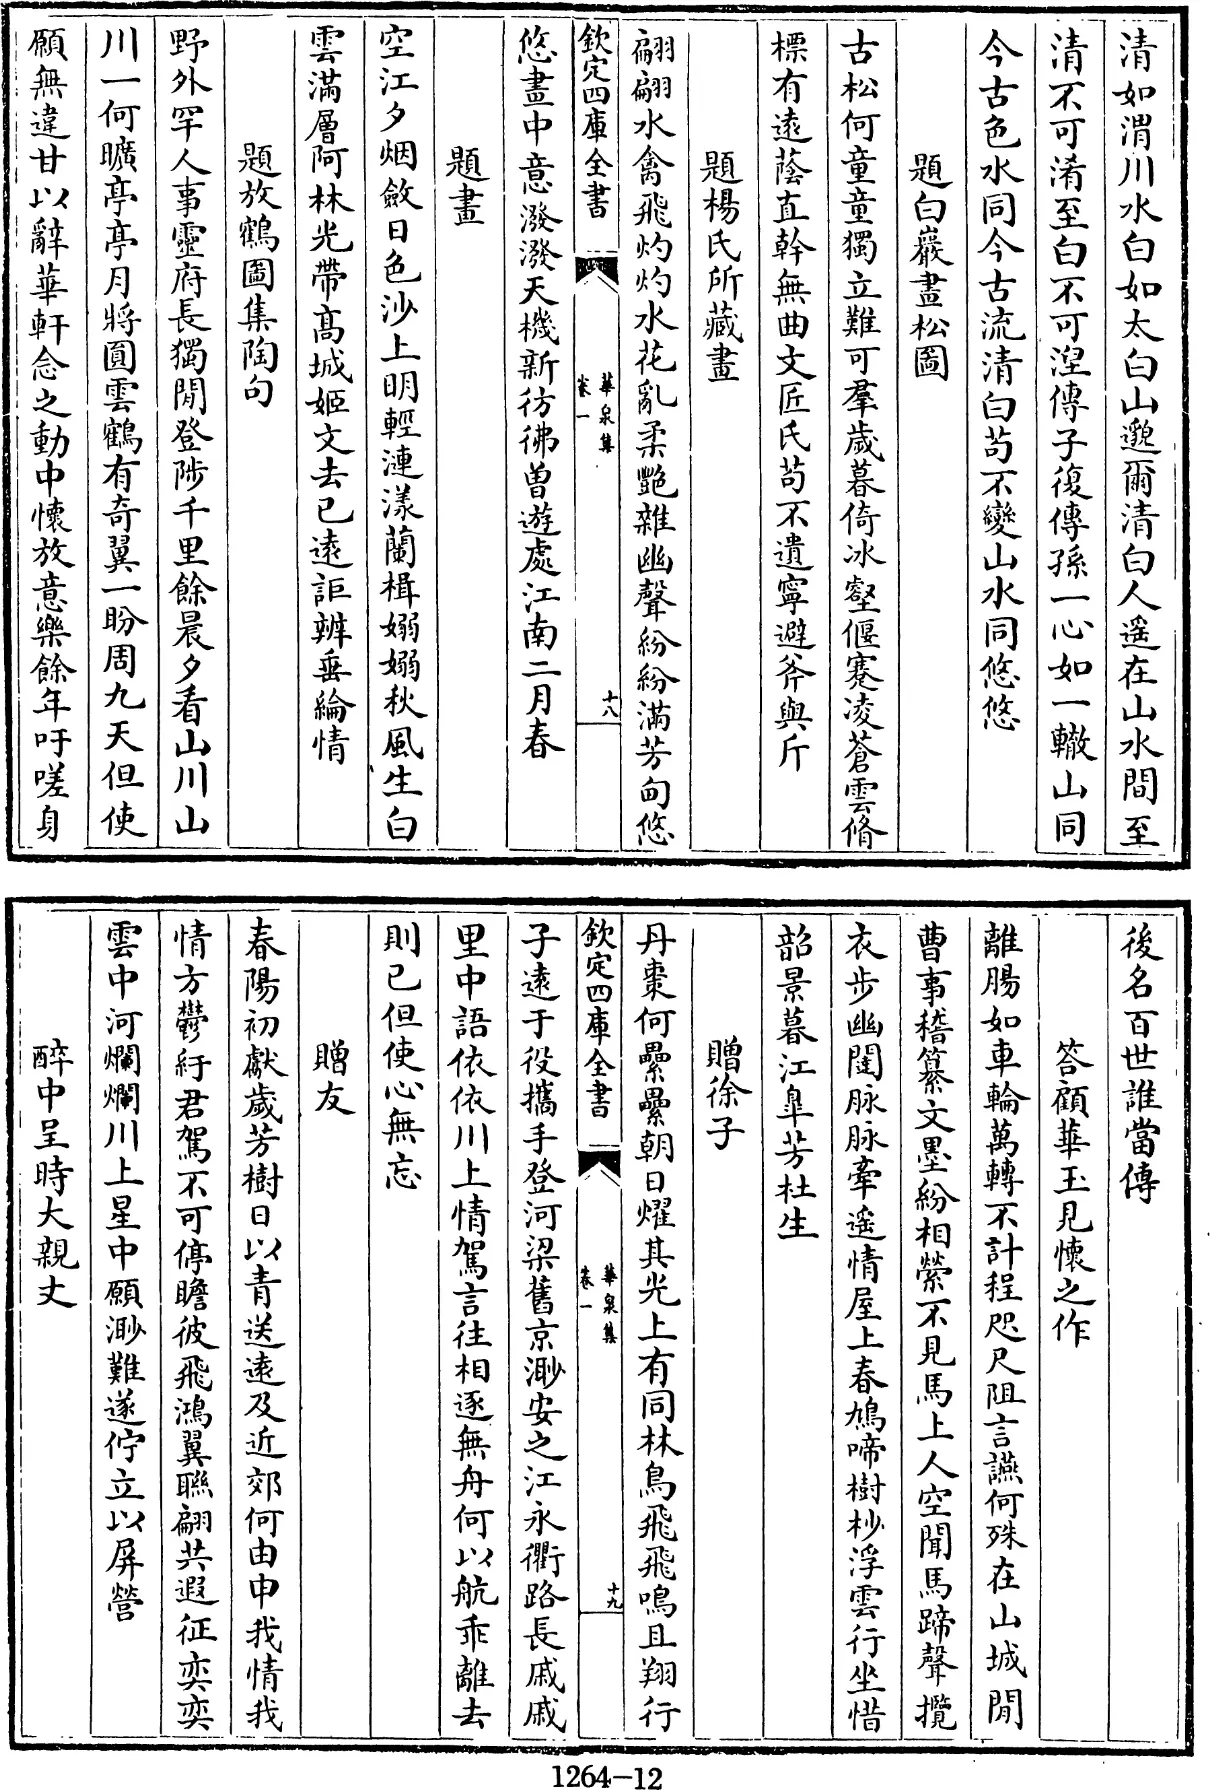 清如渭川水白如太白山邈爾清白人遥在山水間至
清不可淆至白不可湼傳子復傳孫一心如一轍山同
今古色水同今古流清白苟不變山水同悠悠
題白巖畫松圖
古松何童童獨立難可羣歲暮倚冰壑偃蹇凌蒼雲脩
標有遠蔭直幹無曲文匠氏苟不遺寧避斧與斤
題楊氏所藏畫
翩翩水禽飛灼灼水花亂柔艷雜幽聲紛紛滿芳甸悠
欽定四庫全書
華泉集
卷一
十八
悠畫中意潑潑天機新彷彿曽遊處江南二月春
題畫
空江夕烟斂日色沙上明輕漣漾蘭楫嫋嫋秋風生白
雲滿層阿林光帶髙城姬文去已遠詎辨垂綸情
題放鶴圖集陶句
野外罕人事靈府長獨閒登陟千里餘晨夕看山川山
川一何曠亭亭月將圓雲鶴有奇翼一盼周九天但使
願無違甘以辭華軒念之動中懷放意樂餘年吁嗟身
後名百世誰當傳
答顧華玉見懷之作
離腸如車輪萬轉不計程咫尺阻言讌何殊在山城閒
曹事稽纂文墨紛相縈不見馬上人空聞馬蹄聲攬
衣步幽闥脉脉牽遥情屋上春鳩啼樹杪浮雲行坐惜
韶景暮江臯芳杜生
贈徐子
丹棗何纍纍朝日燿其光上有同林鳥飛飛鳴且翔行
欽定四庫全書
華泉集
卷一
十九
子遠于役攜手登河梁舊京渺安之江永衢路長戚戚
里中語依依川上情駕言往相逐無舟何以航乖離去
則已但使心無忘
贈友
春陽初獻歲芳樹日以青送遠及近郊何由申我情我
情方鬱紆君駕不可停瞻彼飛鴻翼聯翩共遐征奕奕
雲中河爛爛川上星中願渺難遂佇立以屏營
醉中呈時大親丈
1264-12